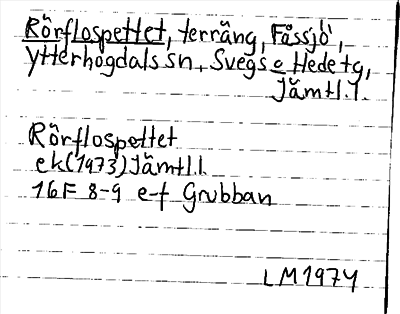 Rörflospettet, terräng, Fåssjö,
Ytterhogdals sn, Svegs o Hede tg,
Jämtl.l.
Rörflospettet
ek(1973) Jämtl.l.
16F 8-9 e-f Grubban
LM1974